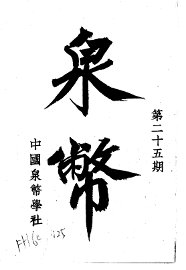 泉幣
第二十五期
中國泉幣學社